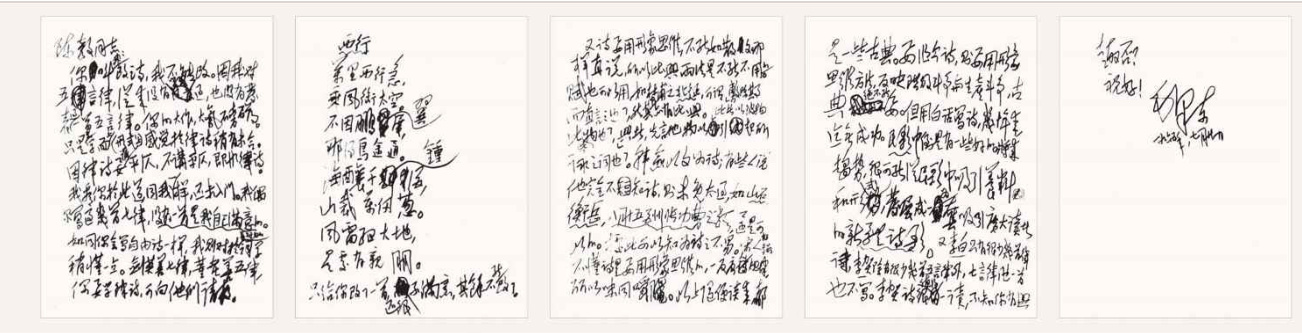 陈毅同志：
你叫改诗，我不能改。因我对
五言律，从来没有学习过，也没有发
表过一首五言律。你的大作，大气磅礴。
只是在字面上感觉于律诗稍有未合。
因律诗要讲平仄，不讲平仄，即非律诗。
我看你于此道，同我一样，还未入门。我偶
尔写过几首七律，没有一首是我自己满意的。
如同你会写自由诗一样，我则对于长短句的词学
稍懂一点。剑英善七律，董老善五律，
你要学律诗，可向他们请教。
西行
万里西行急，
乘风御太空。
不因鹏翼展，
哪得鸟途通。
海酿千钟酒，
山裁万仞葱。
风雷驱大地，
是处有亲朋。
只给你改了一首，还很不满意，其余不能改了。
又诗要用形象思维，不能如散文那
样直说，所以比、兴两法是不能不用的。
赋也可以用，如杜甫之北征，可谓敷陈其事
而直言之也，然其中亦有比、兴。比者，以彼物比
此物也，兴者，先言他物以引起所
咏之词也。韩愈以文为诗；有些人说
他完全不知诗，则未免太过，如山石，
衡岳，八月十五酬张功曹之类，还是可
以的。据此可以知为诗之不易。宋人多数
不懂诗是要用形象思维的，一反唐人规律，
所以味同嚼蜡。以上随便谈来，都
是一些古典。要作今诗，则要用形象
思维方法，反映阶级斗争与生产斗争，古
典绝不能要。但用白话写诗，几十年来，
迄无成功。民歌中倒是有一些好的。将来
趋势，很可能从民歌中吸引养料
和形式，发展成为一套吸引广大读者
的新体诗歌。又李白只有很少几首律
诗，李贺除有很少几首五言律外，七言律他一首
也不写。李贺诗很值得一读，不知你有兴
趣否？
祝好！
毛泽东
一九六五年七月廿一日